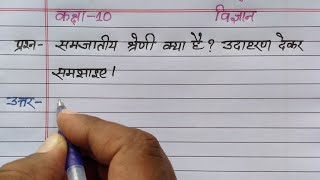 कक्षा-10 विज्ञान
प्रश्न- समजातीय श्रेणी क्या है? उदाहरण देकर
समझाइए।
उत्तर-